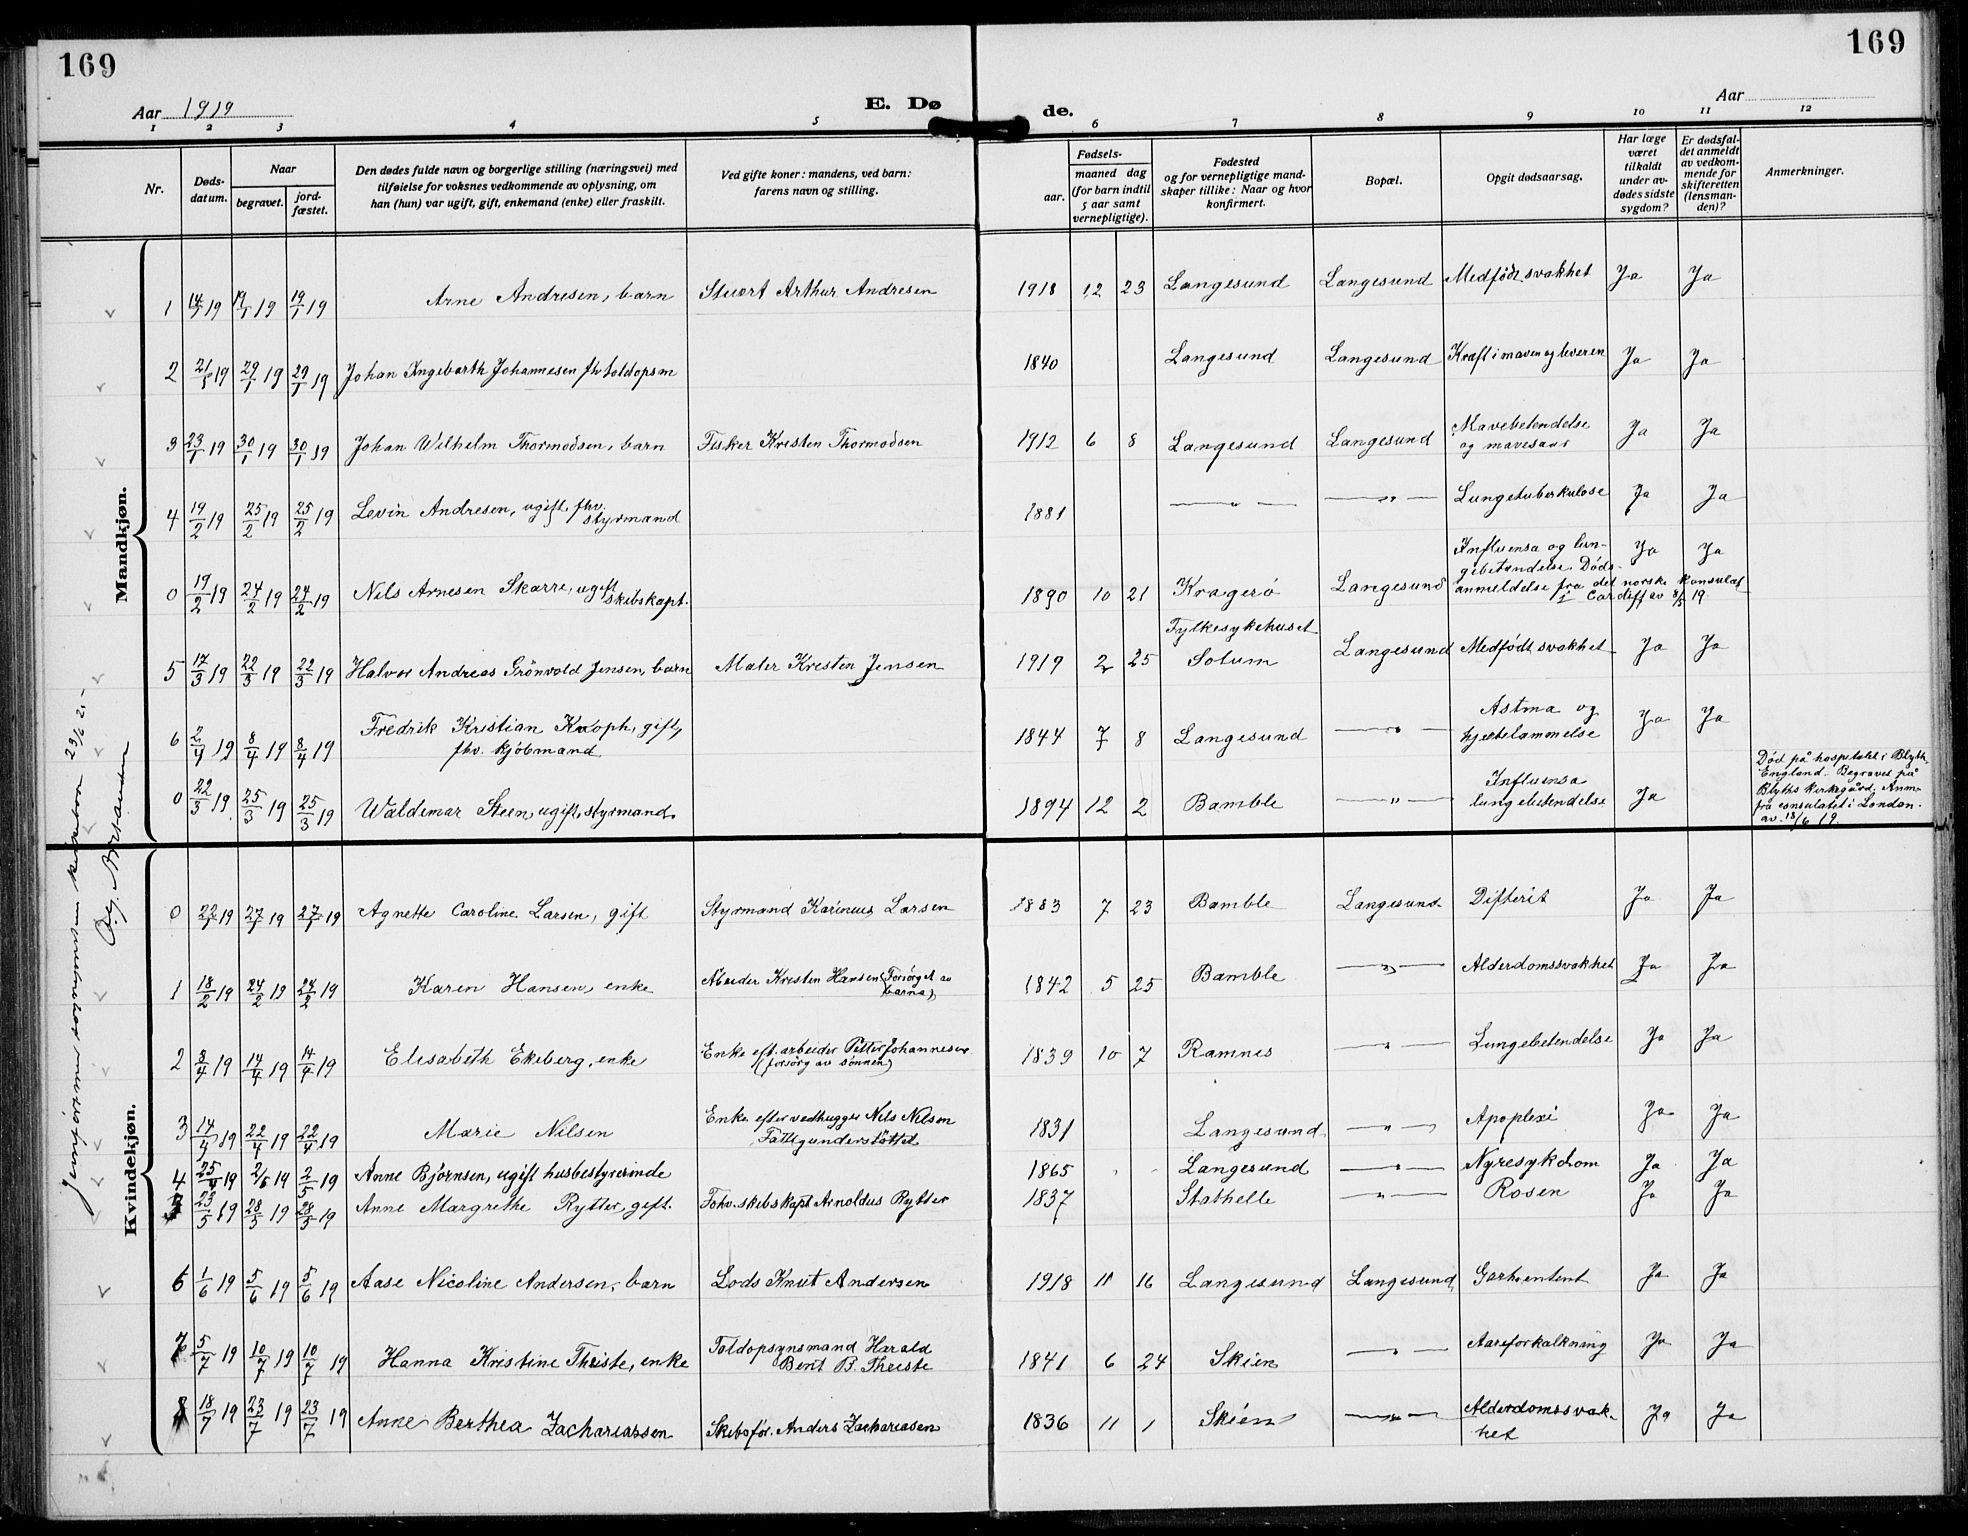 169
169
Aar 1919
E. Dø
de.
Aar
1 2 3 4 5 6 7 8 9 10 11 12
Nr.
Døds-
datum.
Naar
begravet.
jord-
fæstet.
Den dødes fulde navn og borgerlige stilling (næringsvei) med
tilføielse for voksnes vedkommende av oplysning, om
han (hun) var ugift, gift, enkemand (enke) eller fraskilt.
Ved gifte koner: mandens, ved barn:
farens navn og stilling.
Fødsels-
aar.
maaned dag
(for barn indtil
5 aar samt
vernepligtige).
Fødested
og for vernepligtige mand-
skaper tillike: Naar og hvor
konfirmert.
Bopæl.
Opgit dødsaarsag.
Har læge
været
tilkaldt
under av-
dødes sidste
sygdom?
Er dødsfal-
det anmeldt
av vedkom-
mende for
skifteretten
(lensman-
den)?
Anmerkninger.
Mandkjøn.
1 14/1 19 19/1 19 19/1 19 Arne Andresen, barn Stuert Arthur Andresen 1918 12 23 Langesund Langesund Medfödt svakhet Ja Ja
2 21/1 19 29/1 19 29/1 19 Johan Ingebarth Johannesen fhv toldopsm 1840 Langesund Langesund Kræft i maven og leveren Ja Ja
3 23/1 19 30/1 19 30/1 19 Johan Wilhelm Thormodsen, barn Fisker Kristen Thormodsen 1912 6 8 Langesund Langesund Mavebetendelse
og mavesaar Ja Ja
4 19/2 19 25/2 19 25/2 19 Levin Andresen, ugift, fhv.
styrmand 1881 — " — — " — Lungetuberkulose Ja Ja
0 19/2 19 24/2 19 24/2 19 Nils Arnesen Skarre, ugift
skibskapt. 1890 10 21 Kragerö Langesund Influensa og lun-
gebetendelse. Döds-
anmeldelse fra det norske konsulat
i Cardiff av 8/5 19. Ja Ja
5 17/3 19 22/3 19 22/3 19 Halvor Andreas Grönvold Jensen, barn Maler Kristen Jensen 1919 2 25 Fylkesykehuset
Solum Langesund Medfödt svakhet Ja Ja
6 2/4 19 8/4 19 8/4 19 Fredrik Kristian Knoph, gift,
fhv. kjöbmand 1844 7 8 Langesund — " — Astma og
hjertelammelse Ja Ja
0 22/3 19 25/3 19 25/3 19 Waldemar Steen, ugift, styrmand. 1894 12 2 Bamble — " — Influensa
lungebetendelse Ja
Död på hospitalet i Blyth,
England. Begravet på
Blyths kirkegård. Anm.
fra consulatet i London.
av. 18/6 19.
Kvindekjøn.
0 22/1 19 27/1 19 27/1 19 Agnette Caroline Larsen, gift Styrmand Karineus Larsen 1883 7 23 Bamble Langesund Difterit Ja Ja
1 18/2 19 24/2 19 24/2 19 Karen Hansen, enke Abeider Kresten Hansen (Forsörget av
barna) 1842 5 25 Bamble — " — Alderdomssvakhet Ja Ja
2 8/4 19 14/4 19 14/4 19 Elisabeth Ekeberg, enke Enke eft. arbeider Petter Johannesen
(forsörg av sönnen) 1839 10 7 Ramnes — " — Lungebetendelse Ja Ja
3 14/4 19 22/4 19 22/4 19 Marie Nilsen Enke efter vedhugger Nils Nilsen
Fattigunderstöttet 1831 Langesund — " — Apoplexi Ja Ja
4 25/4 19 2/5 19 2/5 19 Anne Björnsen, ugift husbestyrerinde 1865 Langesund — " — Nyresykdom Ja Ja
5 23/5 19 28/5 19 28/5 19 Anne Margrethe Rytter, gift. Fohv. skibskapt Arnoldus Rytter 1837 Stathelle — " — Rosen Ja Ja
6 1/6 19 5/6 19 5/6 19 Aase Nicoline Andersen, barn Lods Knut Andersen 1918 11 16 Langesund Langesund Ja Ja
7 5/7 19 10/7 19 10/7 19 Hanna Kristine Theiste, enke Toldopsynsmand Harald
Bent B. Theiste 1841 6 24 Skien — " — Aareforkalkning Ja Ja
8 18/7 19 23/7 19 23/7 19 Anne Berthea Zachariassen Skibsför. Anders Zachariasen 1836 11 1 Skien — " — Alderdomssvak-
het Ja Ja